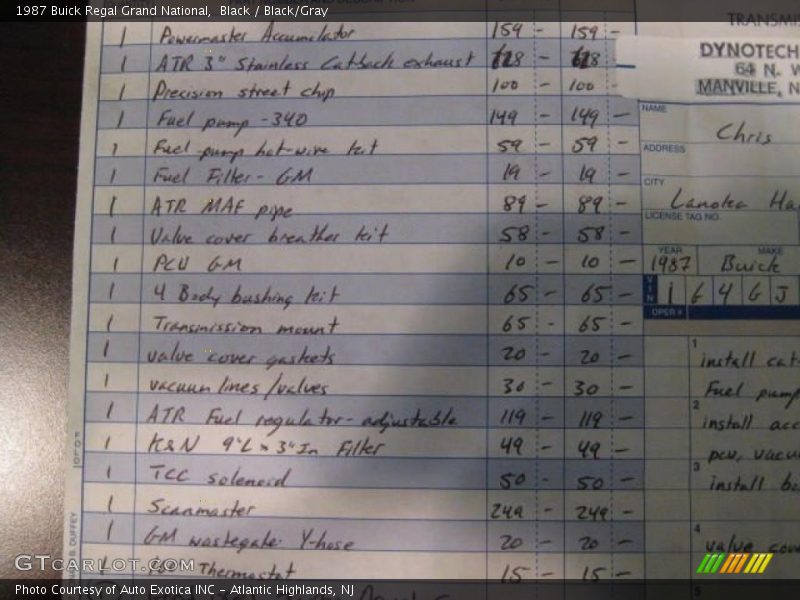 1987 Buick Regal Grand National, Black / Black/Gray
1 Powermaster Accumulator 159 - 159 -
1 ATR 3" Stainless Catback exhaust
1 Precision street chip 100 - 100 -
1 Fuel pump - 340 149 - 149 -
1 Fuel pump hot-wire kit 59 - 59 -
1 Fuel Filter - GM 19 - 19 -
1 ATR MAF pipe 89 - 89 -
1 Valve cover breather kit 58 - 58 -
1 PCV GM 10 - 10 -
1 4 Body bushing kit 65 - 65 -
1 Transmission mount 65 - 65 -
1 valve cover gaskets 20 - 20 -
1 vacuum lines/valves 30 - 30 -
1 ATR Fuel regulator - adjustable 119 - 119 -
1 K&N 9"L x 3"In Filter 49 - 49 -
1 TCC solenoid 50 - 50 -
1 Scanmaster 249 - 249 -
1 GM wastegate Y-hose 20 - 20 -
1 Thermostat 15 - 15 -
TRANSMI
DYNOTECH
64 N. W
MANVILLE, N
NAME
Chris
ADDRESS
CITY
Lanoka Ha
LICENSE TAG NO.
YEAR MAKE
1987 Buick
VIN 1 G 4 G J
OPER #
1
install cat
Fuel pump
2
install acc
pcv, vacu
3
install bo
4
valve cov
5
GTcarlot.com
Photo Courtesy of Auto Exotica INC - Atlantic Highlands, NJ